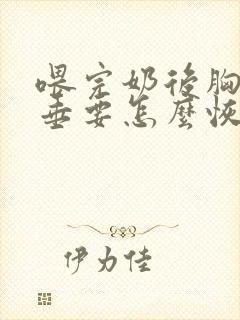 喂完奶後胸
垂要怎麼恢
伊力佳